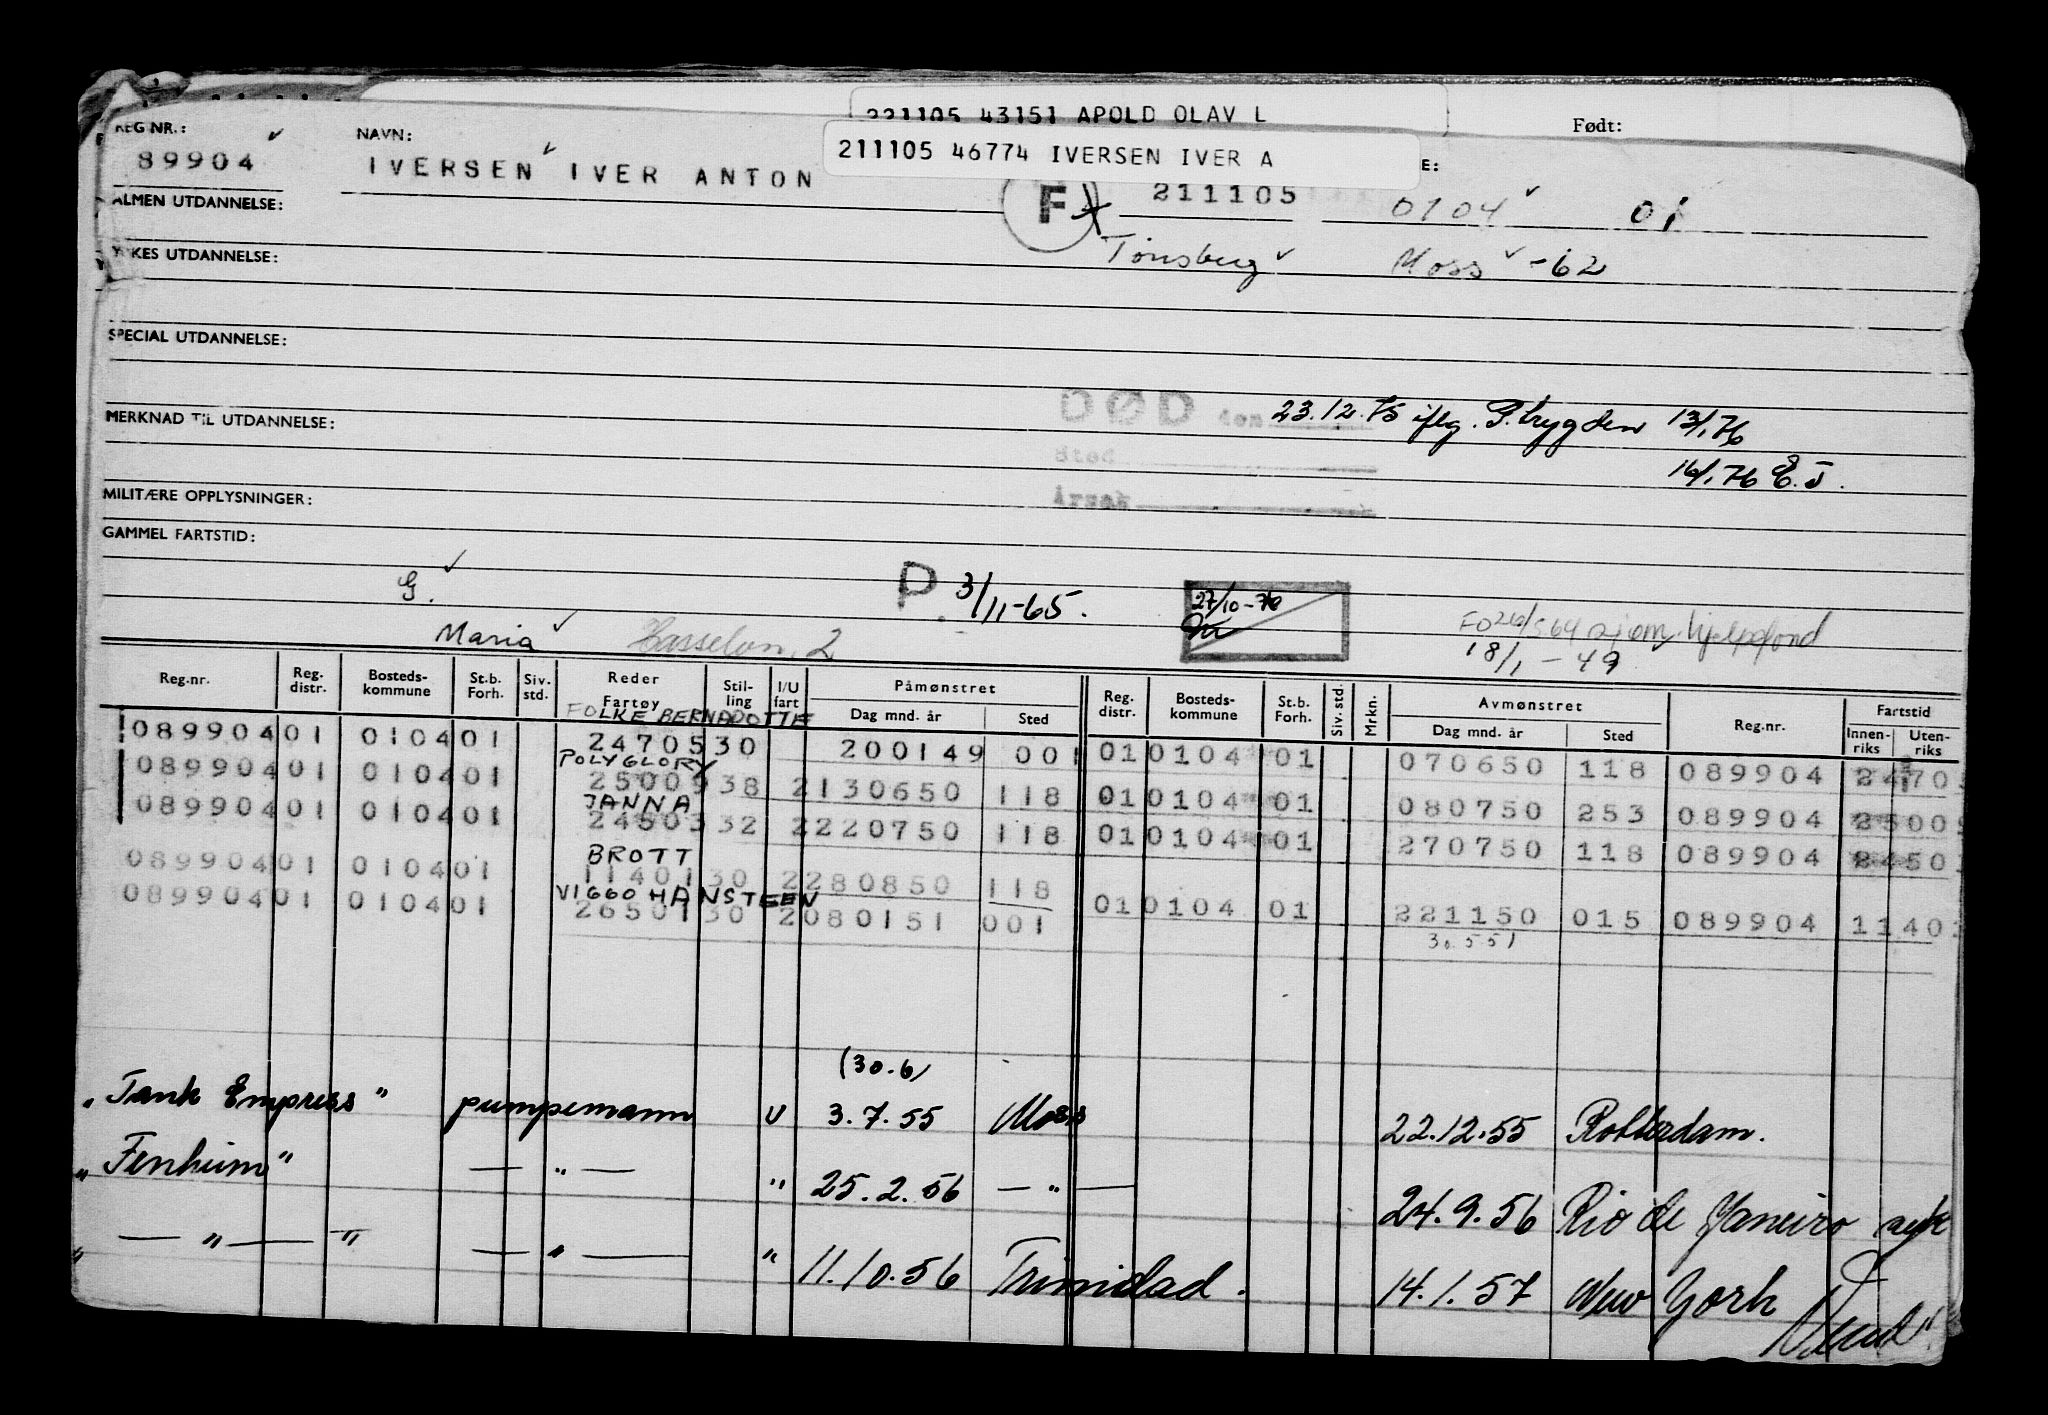 221105 43151 APOLD OLAV L
Født:
REG NR.: NAVN: 211105 46774 IVERSEN IVER A E:
89904 IVERSEN IVER ANTON
F 211105 0104 01
ALMEN UTDANNELSE:
YRKES UTDANNELSE: Tønsberg Moss -62
SPECIAL UTDANNELSE:
DØD den 23.12.75 iflg. P.trygden 13/1.76
MERKNAD TIL UTDANNELSE:
Sted 16/1.76 E.J.
MILITÆRE OPPLYSNINGER: Årsak
GAMMEL FARTSTID:
G. P 3/11-65. 27/10-76
Maria 2 18/1-49
Reg.nr. Reg. distr. Bosteds-kommune St.b. Forh. Siv. std. Reder Fartøy Stil-ling I/U fart Påmønstret Dag mnd. år Sted Reg. distr. Bosteds-kommune St.b. Forh. Siv. std. Mrkn. Avmønstret Dag mnd. år Sted Reg.nr. Fartstid Innen-riks Uten-riks
FOLKE BERNADOTTE
089904 01 0104 01 24705 30 200149 001 01 0104 01 070650 118 089904 24705
POLYGLORY
089904 01 0104 01 25009 38 2 130650 118 01 0104 01 080750 253 089904 25009
JANNA
089904 01 0104 01 24503 32 2 220750 118 01 0104 01 270750 118 089904 2450
BROTT
089904 01 0104 01 11401 30 2 280850 118
VIGGO HANSTEEN
089904 01 0104 01 26501 30 2 080151 001 01 0104 01 221150 015 089904 1140
30551
(30.6)
"Tank Empress" pumpemann U 3.7.55 Moss 22.12.55 Rotterdam.
"Fenheim" — " — " 25.2.56 — " — 24.9.56 Rio de Janeiro syk
" — " — " — " — " 11.10.56 Trinidad. 14.1.57 New York